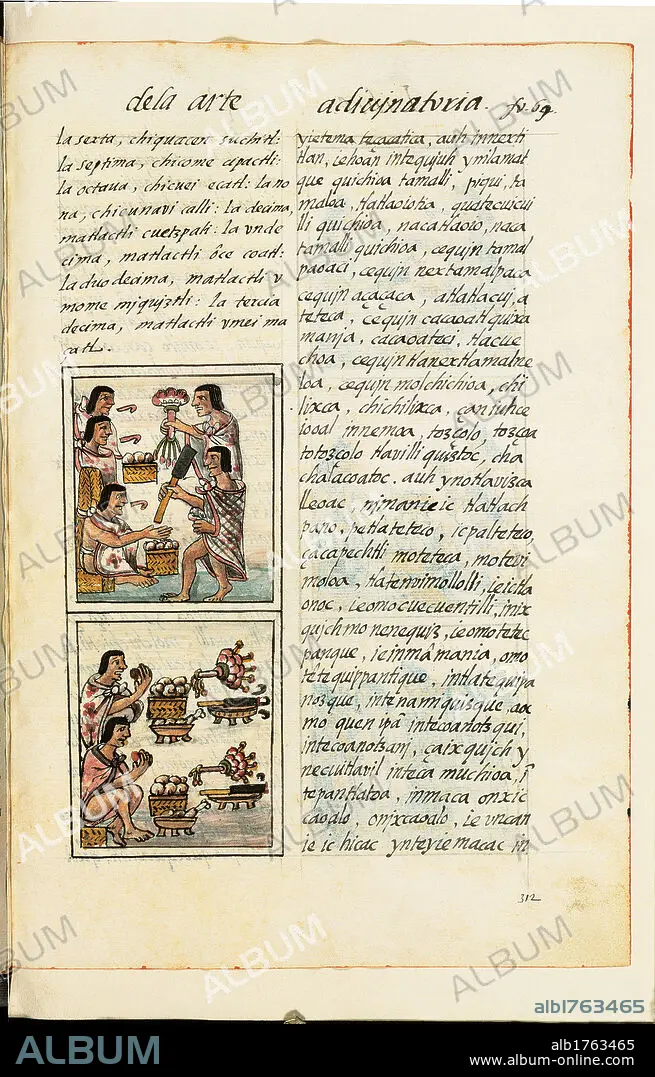 dela arte
adiujnaturia. fo. 69
la sexta, chiquacen suchitl:
la septima, chicome cipactli:
la octaua, chicuei ecatl: la no
na, chicunavi calli: la decima,
matlactli cuetzpali: la vnde
cima, matlactli õce coatl:
la duodecima, matlactli v
mome mjquiztli: la tercia
decima, matlactli vmei ma
çatl.
tecacatica, auh innexti
tlan, iehoãn intequjuh ymlamat
que quichioa tamalli, piqui, ta
maloa,
lli quichioa, nacatlaoio, naca
tamalli quichioa, cequjn tamal
paoaci, cequjn nextamalpaca
cequjn açaçaca, atlatlacuj, a
teteca, cequjn cacaoatl quixa
manja, cacaoateci, tlacue
choa, cequjn tlanextlamalne
loa, cequjn molchichioa, chi
lixca, chichilixca, can iuhce
iooal innemoa, tozcolo, tozcoa
totozcolo tlavilli quiztoc, cha
chalacatoc. auh ynotlavizca
lleoac, njmanie ic tlatlach
pano, petlateteco, icpalteteco,
çacapechtli moteteca, motevi
moloa, tlatenvimollolli, ie ictla
onoc, ie omocuecuentilli, inix
qujch mo nenequiz, ie omotetec
panque, ie inmâmanja, omo
têtequippantique, intlatequipa
nozque, intenamiquizque, aoc
mo quen ipã intecoanotzqui,
intecoanotzanj, çaixqujch y
necuitlavil inteca muchioa, î
tepantlatoa, inmaca onxic
caoalo, onjxcaoalo, ie vncan
ie ic hicac ynteyiemacac in
312
ALBUM
alb1763465
ALBUM
alb1763465
www.album-online.com